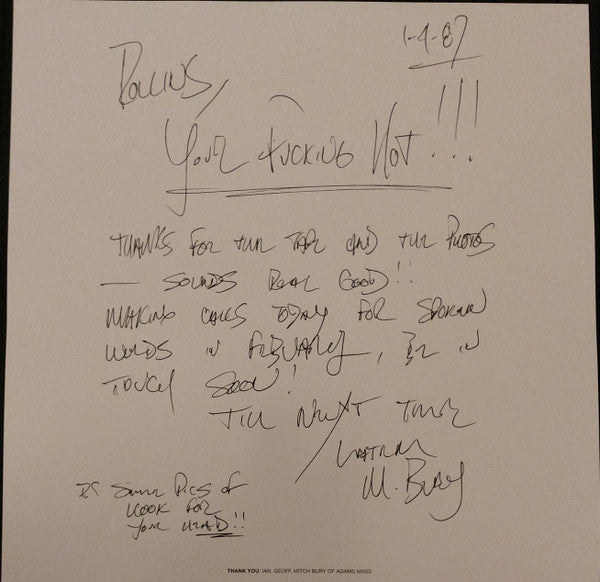 1-4-87
Rollins,
Your Fucking Hot!!!
THANKS FOR THE TAPE AND THE PHOTOS
— SOUNDS REAL GOOD!!
MAKING CALLS TODAY FOR SPOKEN
WORDS IN FEBUARY, BE IN
TOUCH SOON!
TILL NEXT TIME
M. BURY
PS SOME PICS OF
HOOK FOR
YOUR HEAD!!
THANK YOU: IAN, GEOFF, MITCH BURY OF ADAMS MASS